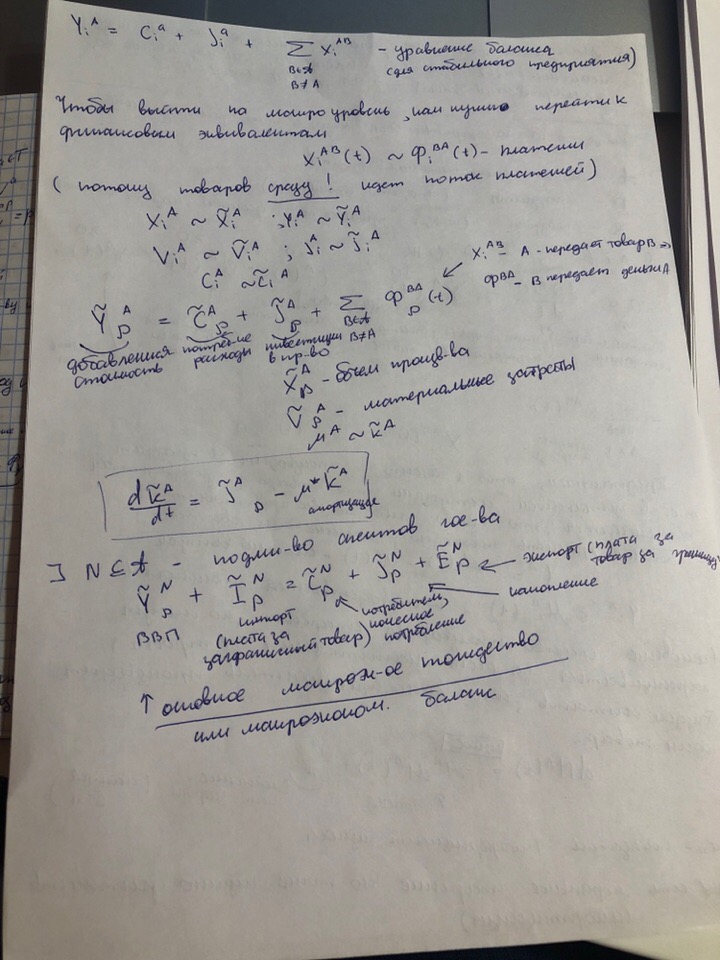 Y_i^A = C_i^a + J_i^a + ∑_{B∈𝒜, B≠A} X_i^{AB} – уравнение баланса
(для стабильного предприятия)
Чтобы выйти на макроуровень, нам нужно перейти к
финансовым эквивалентам
X_i^{AB}(t) ~ Ф_i^{BA}(t) – платежи
( потоку товаров сразу! идет поток платежей)
X_i^A ~ X̃_i^A ; Y_i^A ~ Ỹ_i^A
V_i^A ~ Ṽ_i^A ; J_i^A ~ J̃_i^A
C_i^A ~ C̃_i^A
X_i^{AB} – A - передает товар B ⇒
Ф^{BA} – B передает деньги A
Ỹ_p^A = C̃_p^A + J̃_p^A + ∑_{B∈𝒜, B≠A} Ф_p^{BA}(t)
добавленная стоимость
потреб-ие расходы
инвестиции в пр-во
X̃_p^A - объем произв-ва
Ṽ_p^A - материальные затраты
μ^A ~ k̃^A
dk̃^A/dt = J̃_p^A - μ* k̃^A
амортизация
] N ⊆ 𝒜 - подмн-во агентов гос-ва
Ỹ_p^N + Ĩ_p^N = C̃_p^N + J̃_p^N + Ẽ_p^N ← экспорт (плата за
товар за границу)
ВВП
импорт
(плата за
заграничный товар)
конечное
потребление
накопление
↑ основное макроэк-ое тождество
или макроэконом. баланс